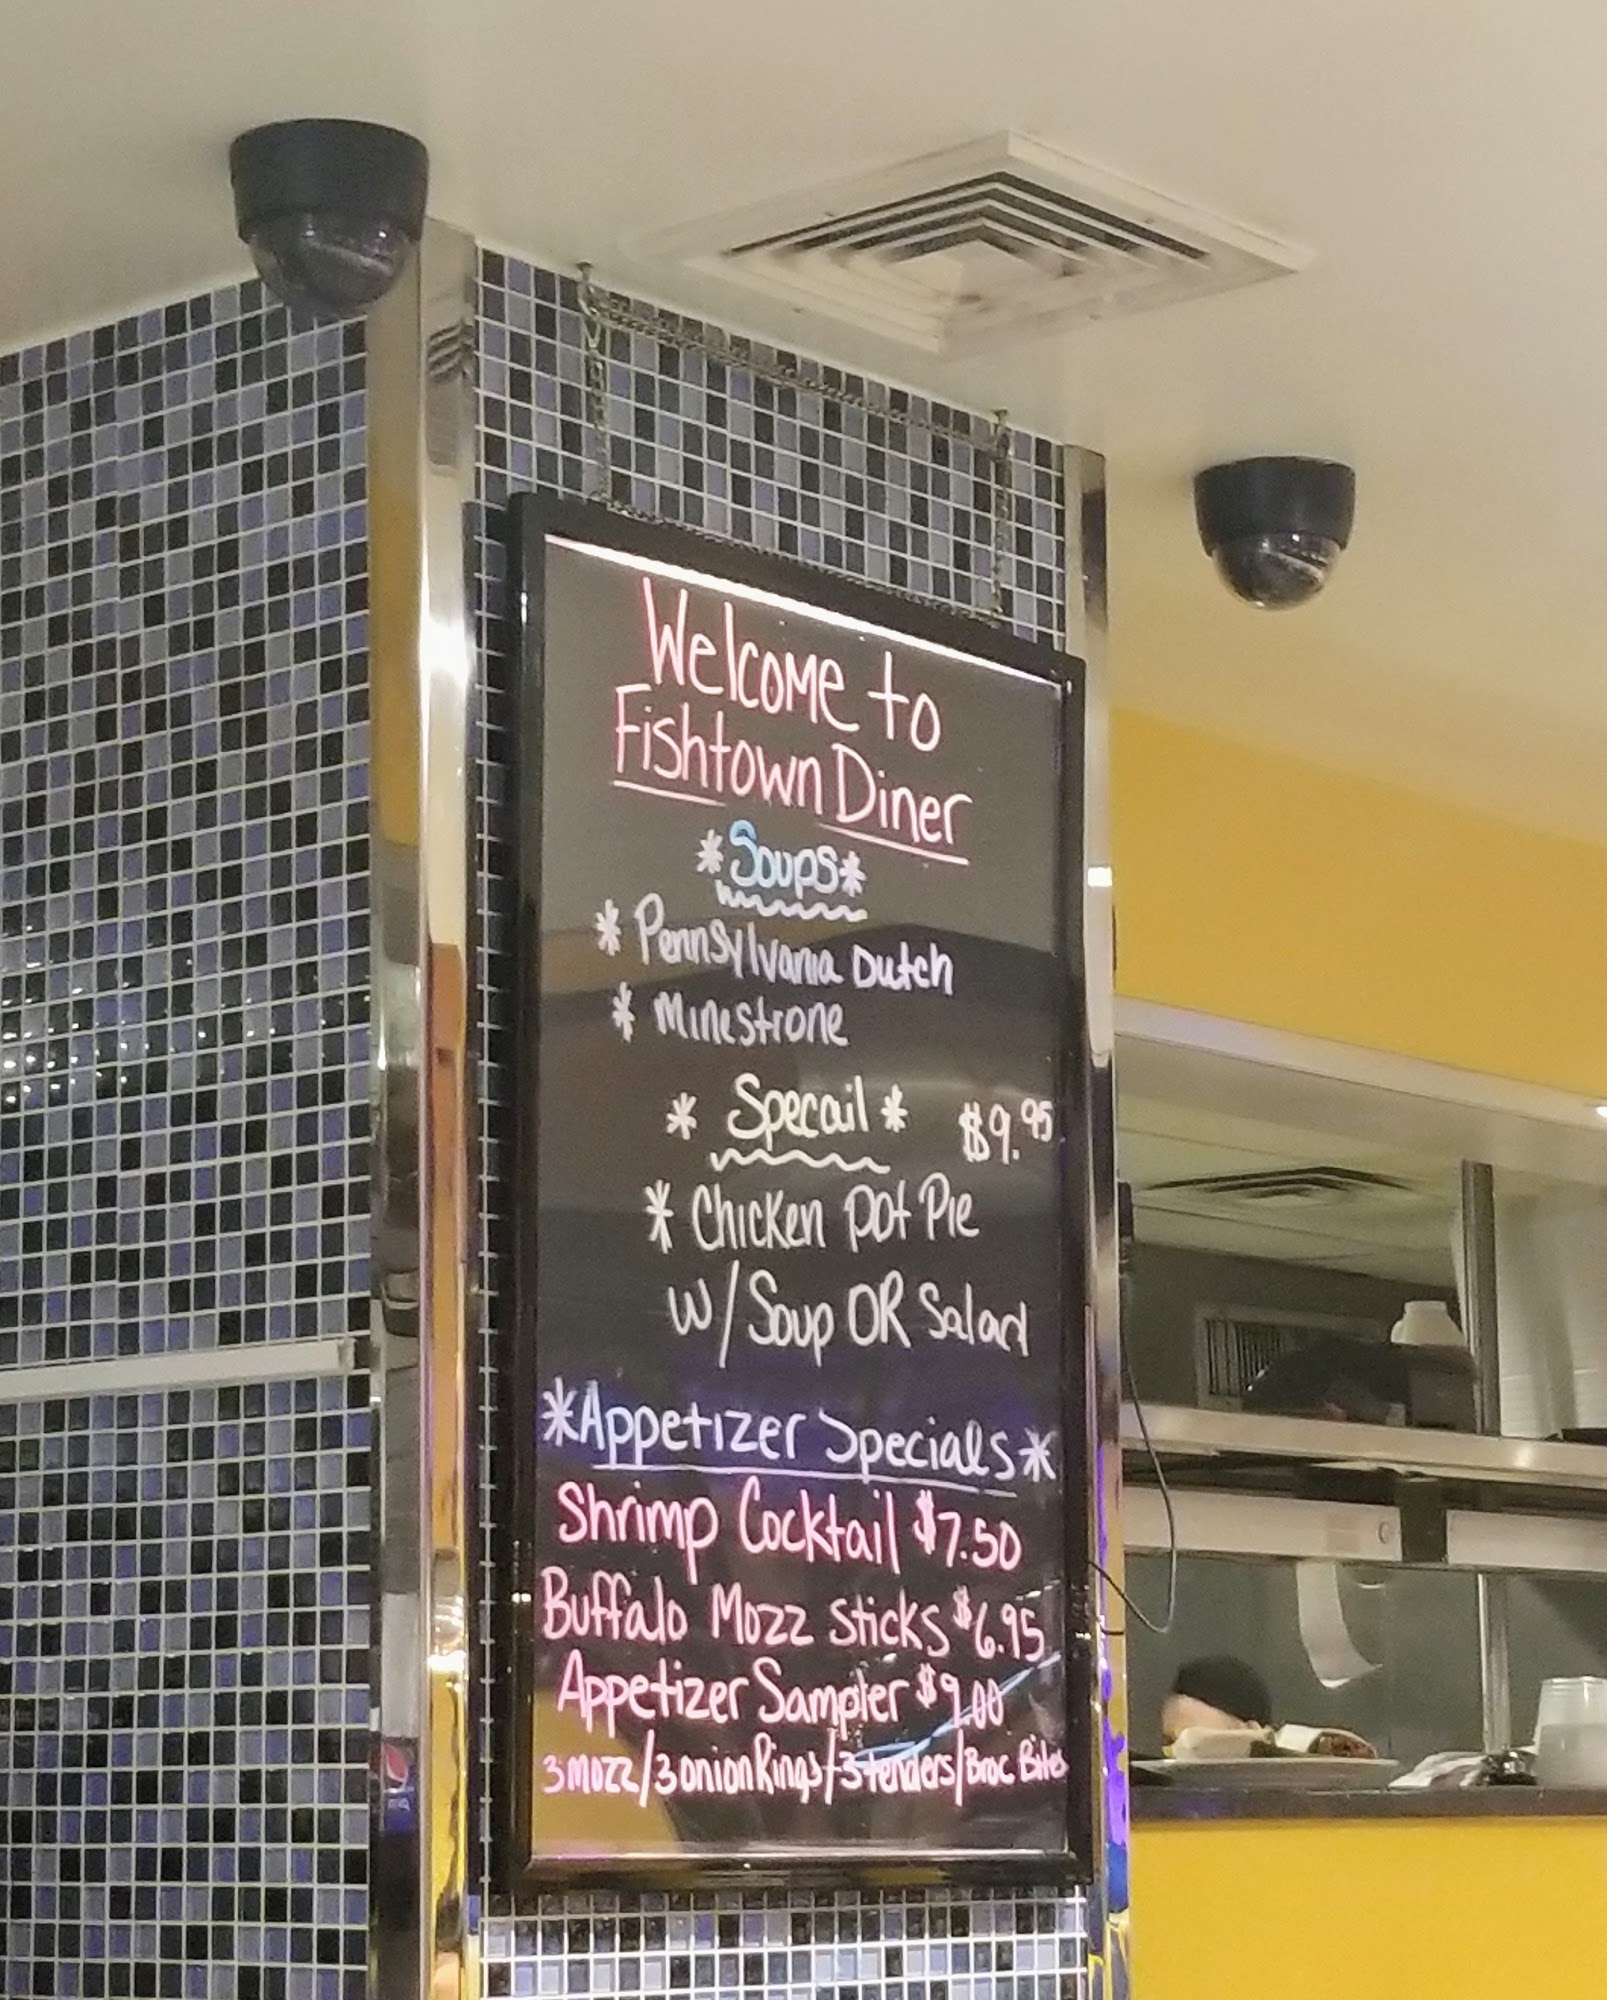 Welcome to
Fishtown Diner
*Soups*
* Pennsylvania Dutch
* Minestrone
* Specail * $9.95
* Chicken Pot Pie
w/Soup OR Salad
*Appetizer Specials*
Shrimp Cocktail $7.50
Buffalo Mozz Sticks $6.95
Appetizer Sampler $9.00
3 mozz/3 onion Rings/3 tenders/Broc Bites